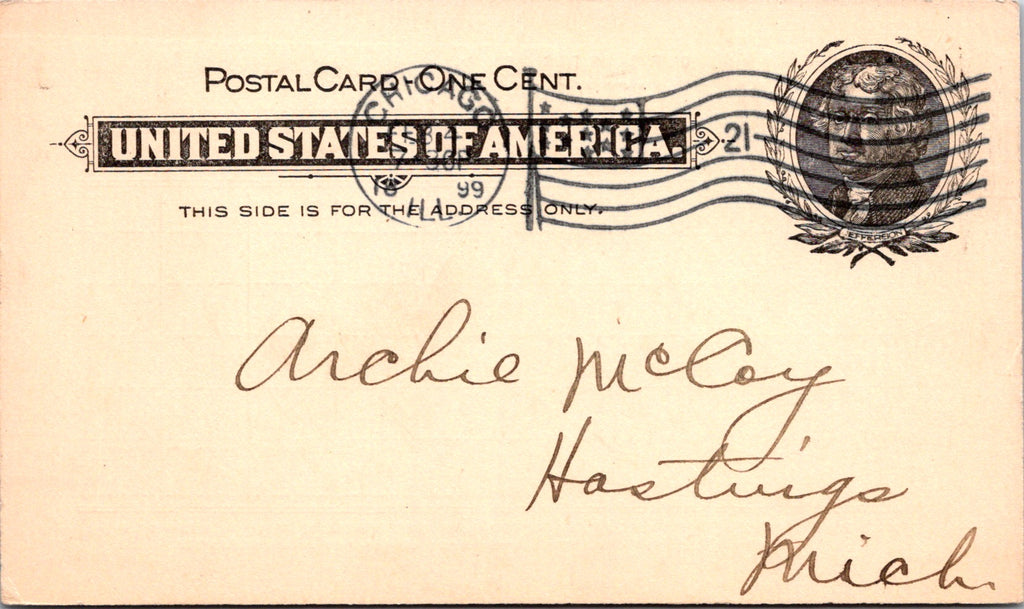 POSTAL CARD - ONE CENT.
UNITED STATES OF AMERICA.
THIS SIDE IS FOR THE ADDRESS ONLY.
CHICAGO
18 99
ILL.
21
JEFFERSON
Archie McCoy
Hastings
Mich.